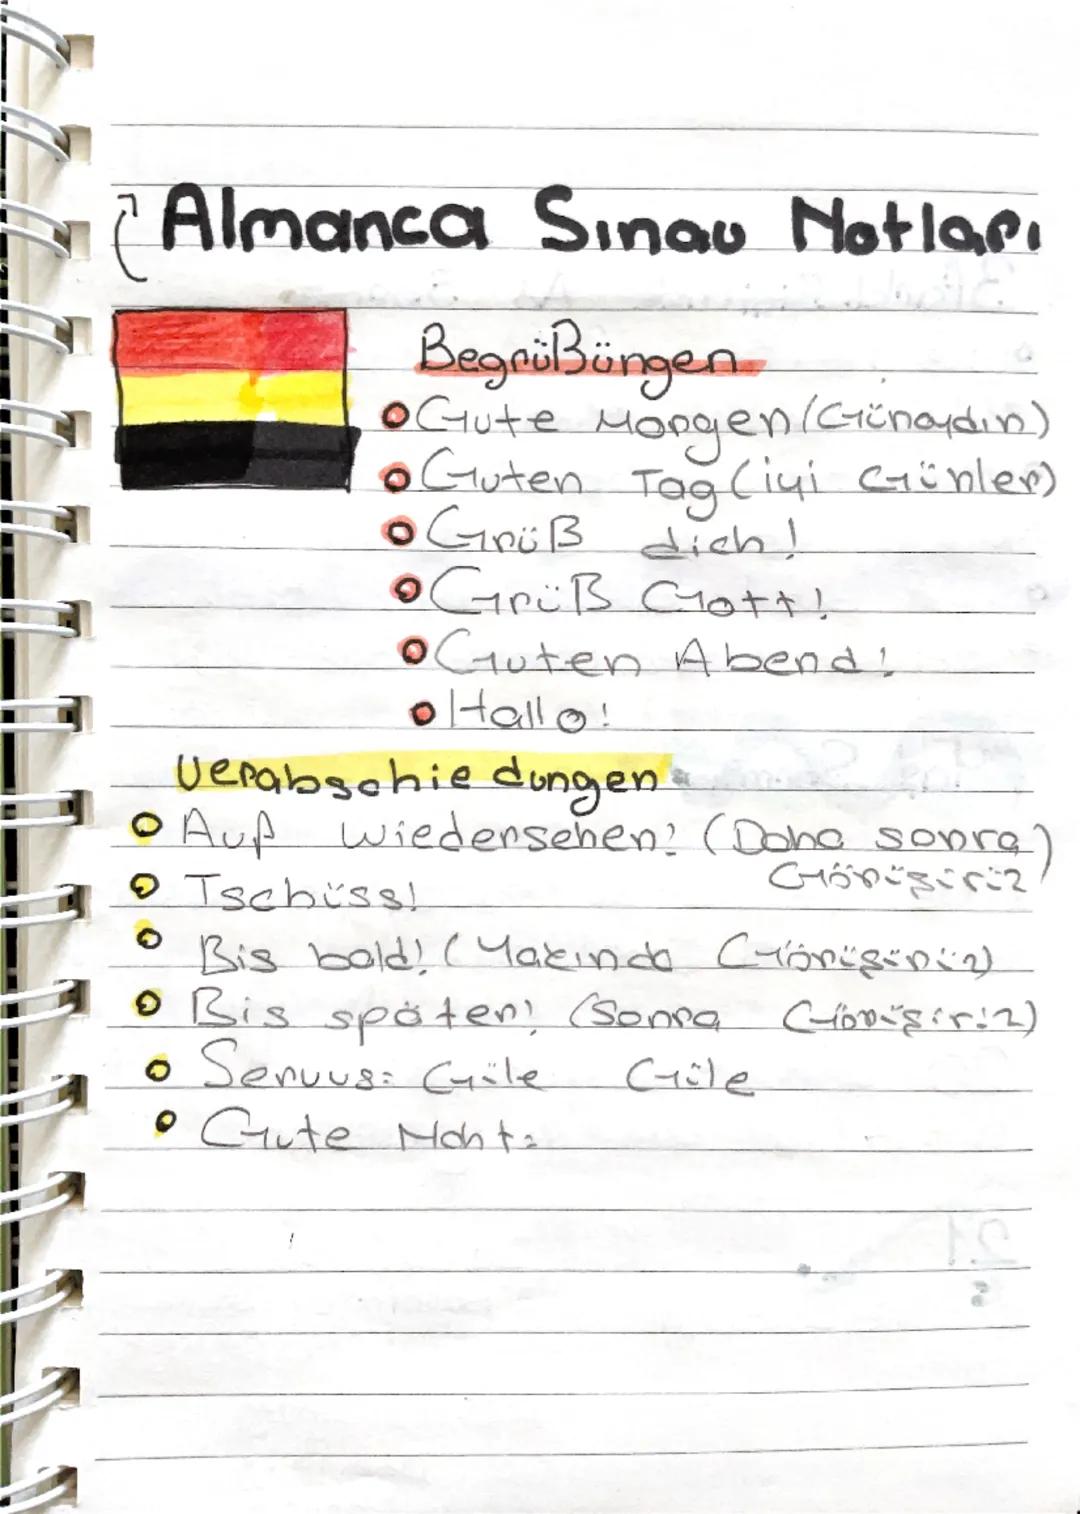 Almanca Sınav Notları
Begrüßüngen
Gute Morgen (Günaydın)
Guten Tag (iyi Günler)
Grüß dich!
Grüß Gott!
Guten Abend!
Hallo!
Verabschiedungen
Auf Wiedersehen! (Daha sonra
Görüşürüz)
Tschüss!
Bis bald! (Yakında Görüşürüz)
Bis später! (Sonra Görüşürüz)
Servus: Güle Güle
Gute Naht: